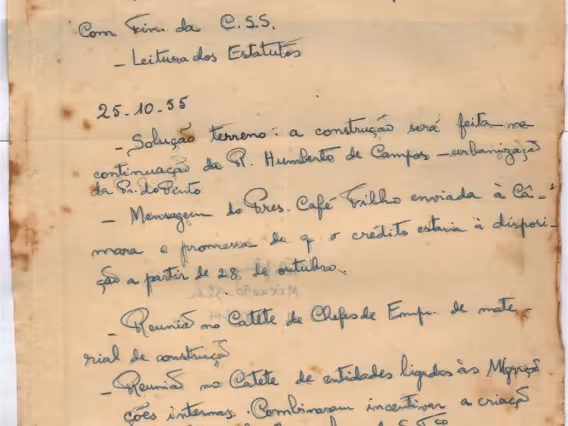 Com. Fin. da C.S.S.
- Leitura dos Estatutos
25-10-55
- Solução terreno: a construção será feita na
continuação da R. Humberto de Campos - urbanização
da Pr. do Pinto
- Mensagem do Pres. Café Filho enviada à Câ-
mara e promessa de q. o crédito estaria à disposi-
ção a partir de 28 de outubro.
- Reunião no Catete de Chefes de Emp. de mate-
rial de construção
- Reunião no Catete de entidades ligadas às
ções internas. Combinaram incentivar a criação